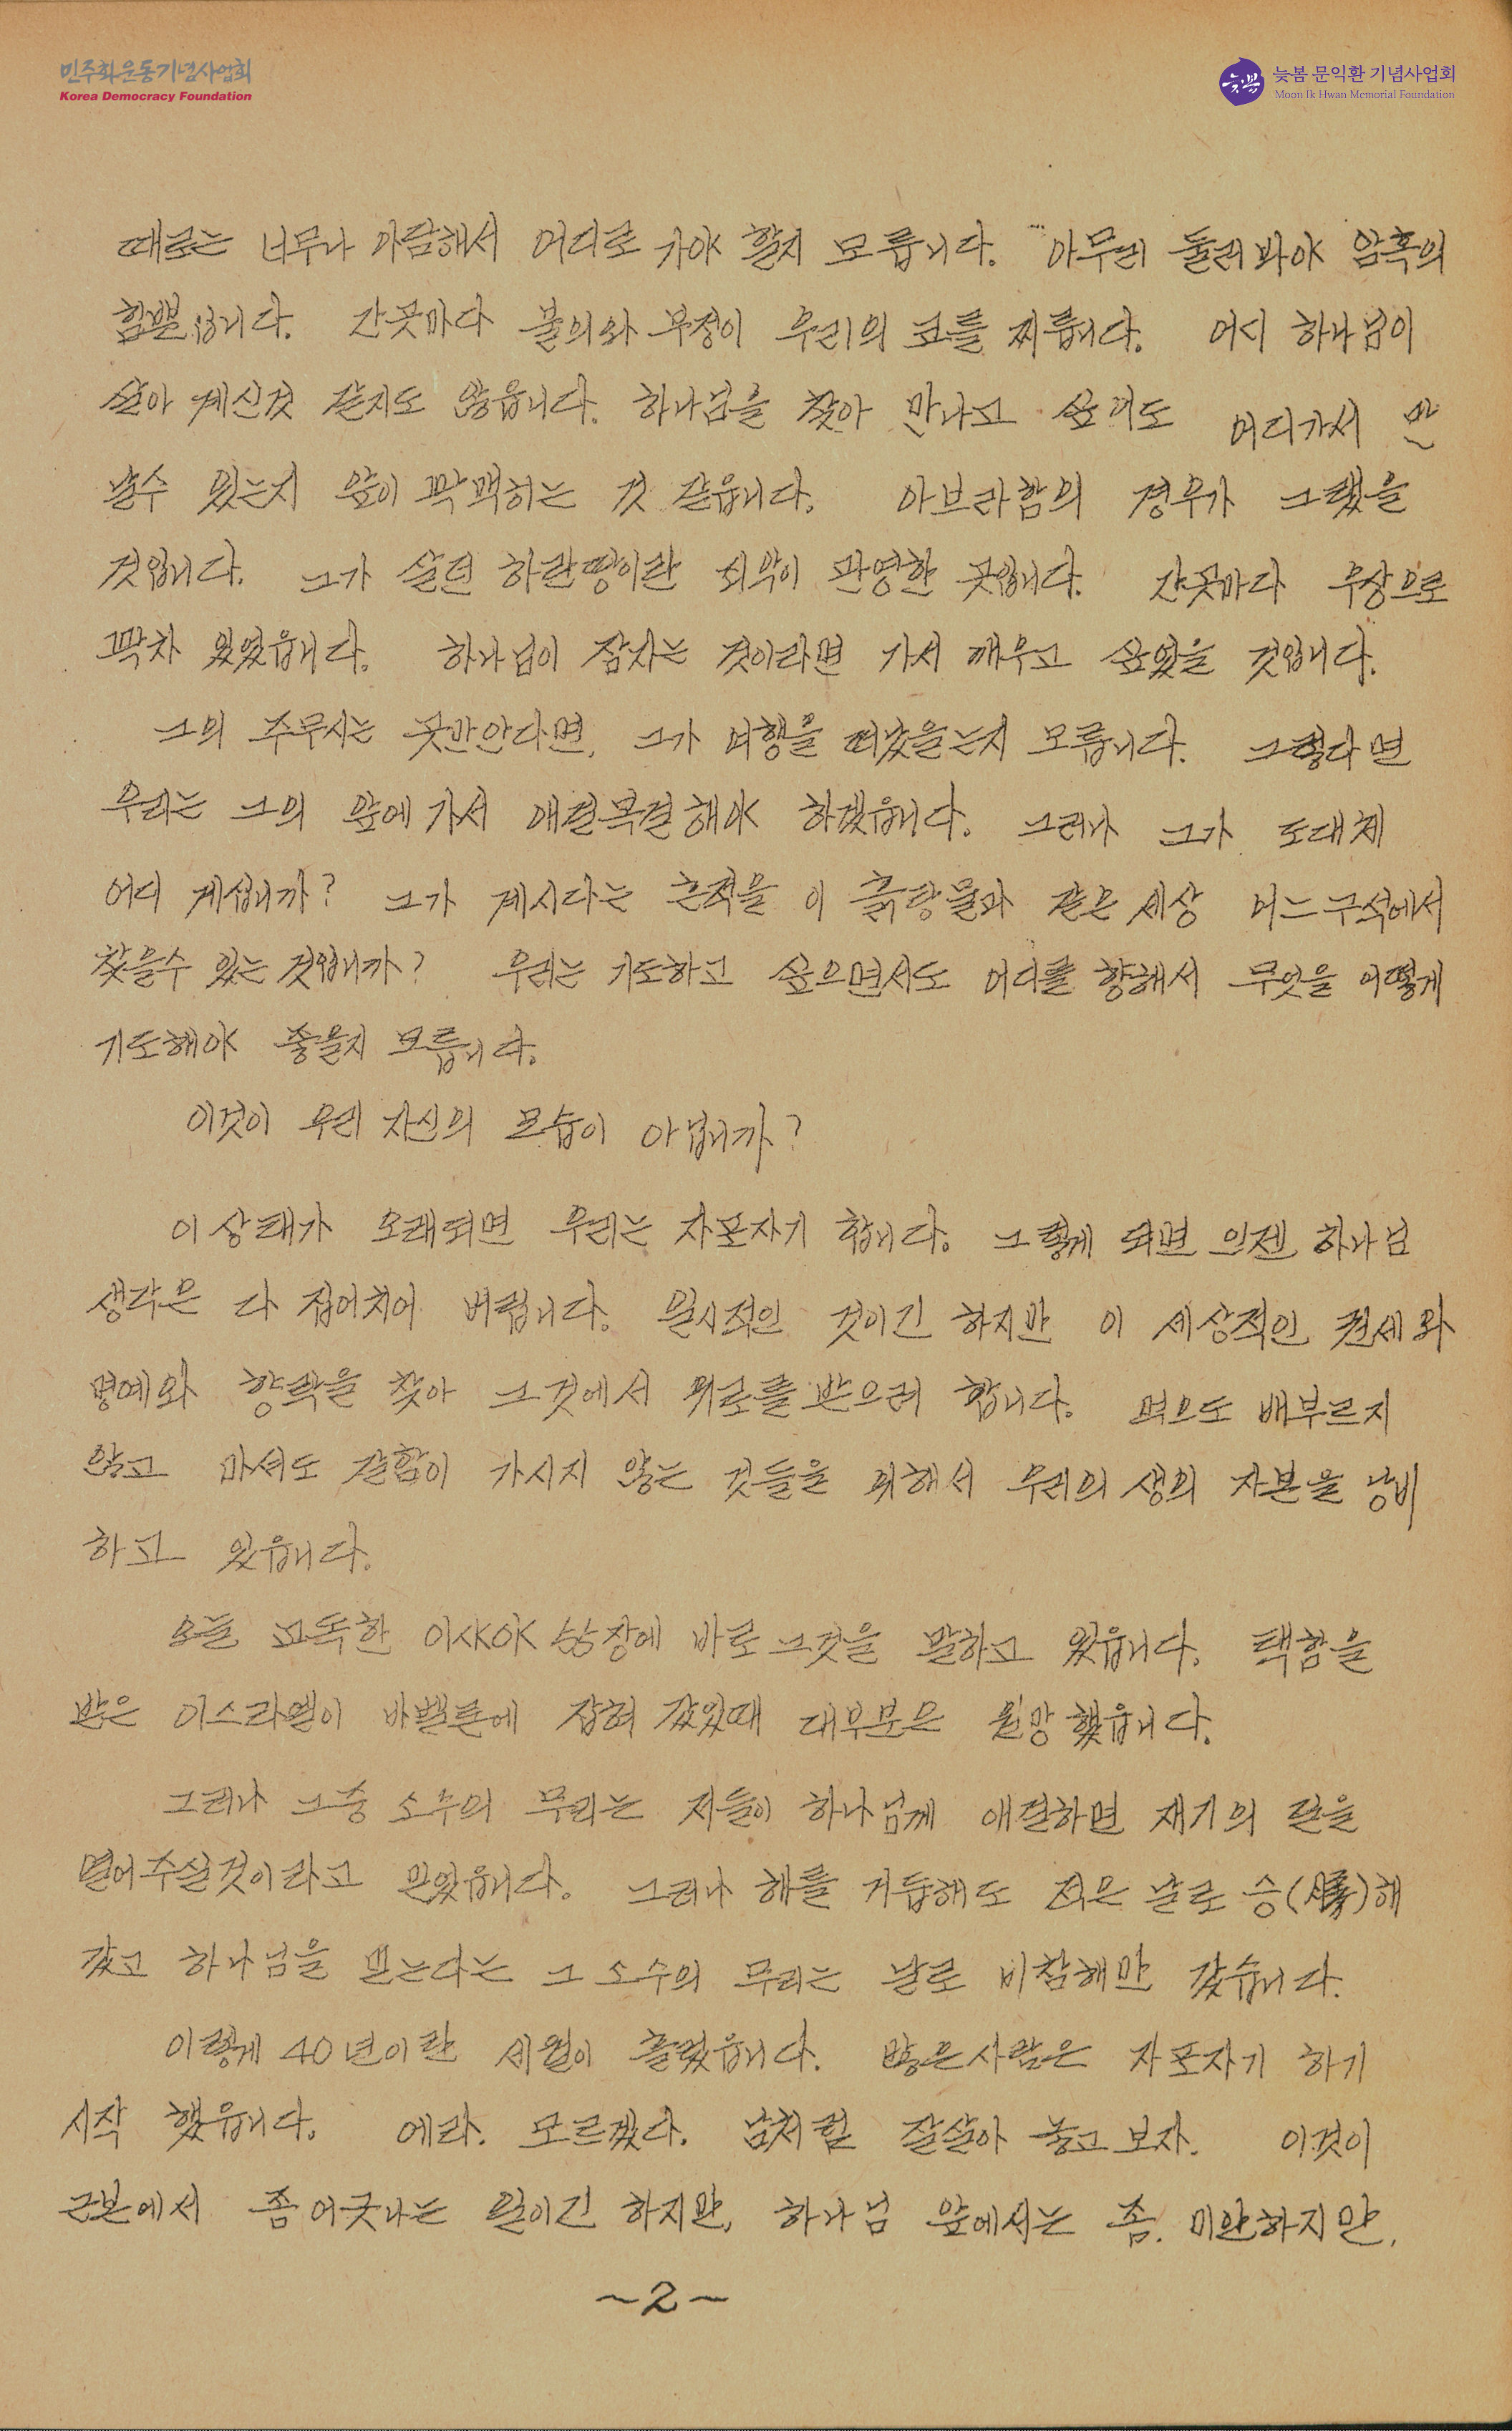 민주화운동기념사업회
Korea Democracy Foundation
늦봄 문익환 기념사업회
Moon Ik Hwan Memorial Foundation
때로는 너무나 아람해서 어디로 가야 할지 모릅니다. 아무리 둘러봐야 암흑의
힘뿐입니다. 간곳마다 불의와 부정이 우리의 코를 찌릅니다. 어디 하나님이
살아 계신것 같지도 않읍니다. 하나님을 찾아 만나고 싶어도 어디가서 만
날수 있는지 앞이 깍맥히는 것 같읍니다. 아브라함의 경우가 그랬을
것입니다. 그가 살던 하란땅이란 죄악이 관영한 곳입니다. 간곳마다 우상으로
꽉차 있었읍니다. 하나님이 잠자는 것이라면 가서 깨우고 싶었을 것입니다.
그의 주무시는 곳만안다면, 그가 여행을 떠났을는지 모릅니다. 그렇다면
우리는 그의 앞에 가서 애걸복걸해야 하겠읍니다. 그러나 그가 도대체
어디 계십니까? 그가 계시다는 흔적을 이 흙탕물과 같은 세상 어느구석에서
찾을수 있는 것입니까? 우리는 기도하고 싶으면서도 어디를 향해서 무엇을 어떻게
기도해야 좋을지 모릅니다.
이것이 우리 자신의 모습이 아닙니까?
이 상태가 오래되면 우리는 자포자기 합니다. 그렇게 되면 인젠 하나님
생각은 다 집어치어 버립니다. 일시적인 것이긴 하지만 이 세상적인 권세와
명예와 향락을 찾아 그것에서 위로를 받으려 합니다. 먹으도 배부르지
않고 마셔도 갈함이 가시지 않는 것들을 위해서 우리의 생의 자본을 낭비
하고 있읍니다.
오늘 교독한 이사야 55장에 바로 그것을 말하고 있읍니다. 택함을
받은 이스라엘이 바벨론에 잡혀 갔었때 대부분은 원망했읍니다.
그러나 그중 소수의 무리는 저들이 하나님께 애걸하면 재기의 문을
열어주실것이라고 믿었읍니다. 그러나 해를 거듭해도 적은 날로 승(勝)해
갔고 하나님을 믿는다는 그 소수의 무리는 날로 비참해만 갔습니다.
이렇게 40년이란 세월이 흘렀읍니다. 많은사람은 자포자기 하기
시작 했읍니다. 에라. 모르겠다. 남처럼 잘살아 놓고 보자. 이것이
근본에서 좀 어긋나는 일이긴 하지만, 하나님 앞에서는 좀. 미안하지만,
~2~